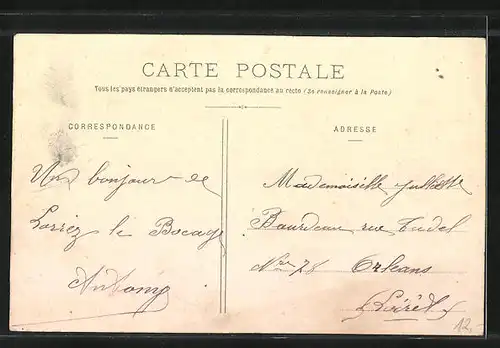 CARTE POSTALE
Tous les pays étrangers n'acceptent pas la correspondance au recto (Se renseigner à la Poste)
CORRESPONDANCE
ADRESSE
Un bonjour de
Lorrez le Bocage
Antony
Mademoiselle Juliette
Bourdeau rue Tudel
Nro 78 Orleans
Loiret
12.